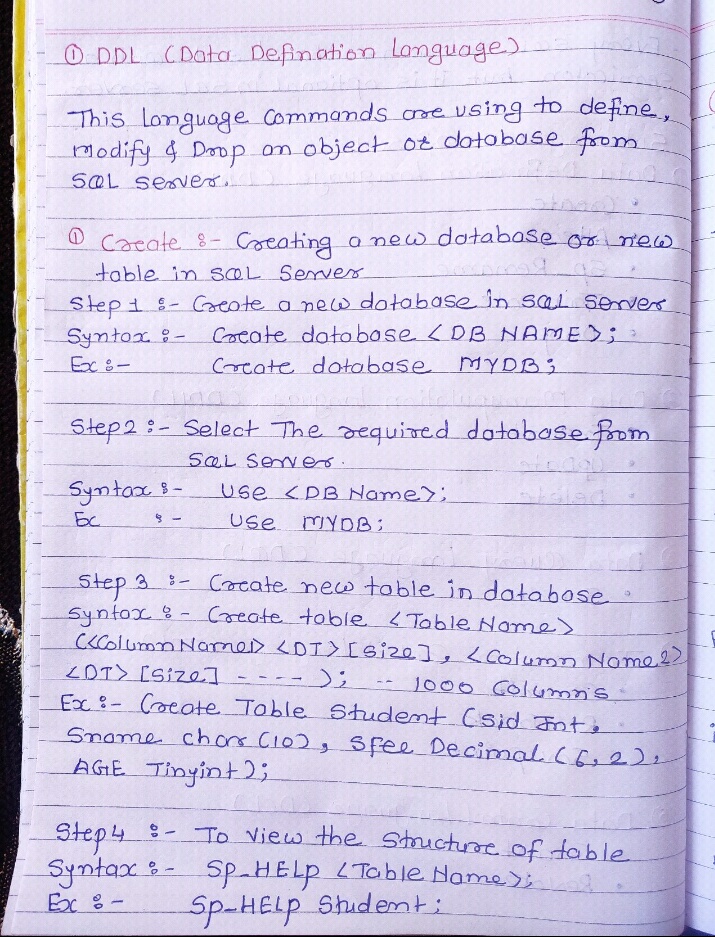 ① DDL (Data Defination Language)
This Language Commands are using to define,
Modify & Drop an object or database from
SQL server.
① Create :- Creating a new database or new
table in SQL Server
Step 1 :- Create a new database in SQL server
Syntax :- Create database <DB NAME>;
Ex :- Create database MYDB;
Step2 :- Select The required database from
SQL Server.
Syntax :- USE <DB Name>;
Ex :- USE MYDB;
Step 3 :- Create new table in database
Syntax :- Create table <Table Name>
(<Column Name1> <DT> [Size], <Column Name2>
<DT> [Size] ---- ); -- 1000 Columns
Ex :- Create Table Student (Sid Int,
Sname char (10), Sfee Decimal (6,2),
AGE Tinyint);
Step4 :- To View the Structure of table
Syntax :- SP_HELP <Table Name>;
Ex :- SP_HELP Student;